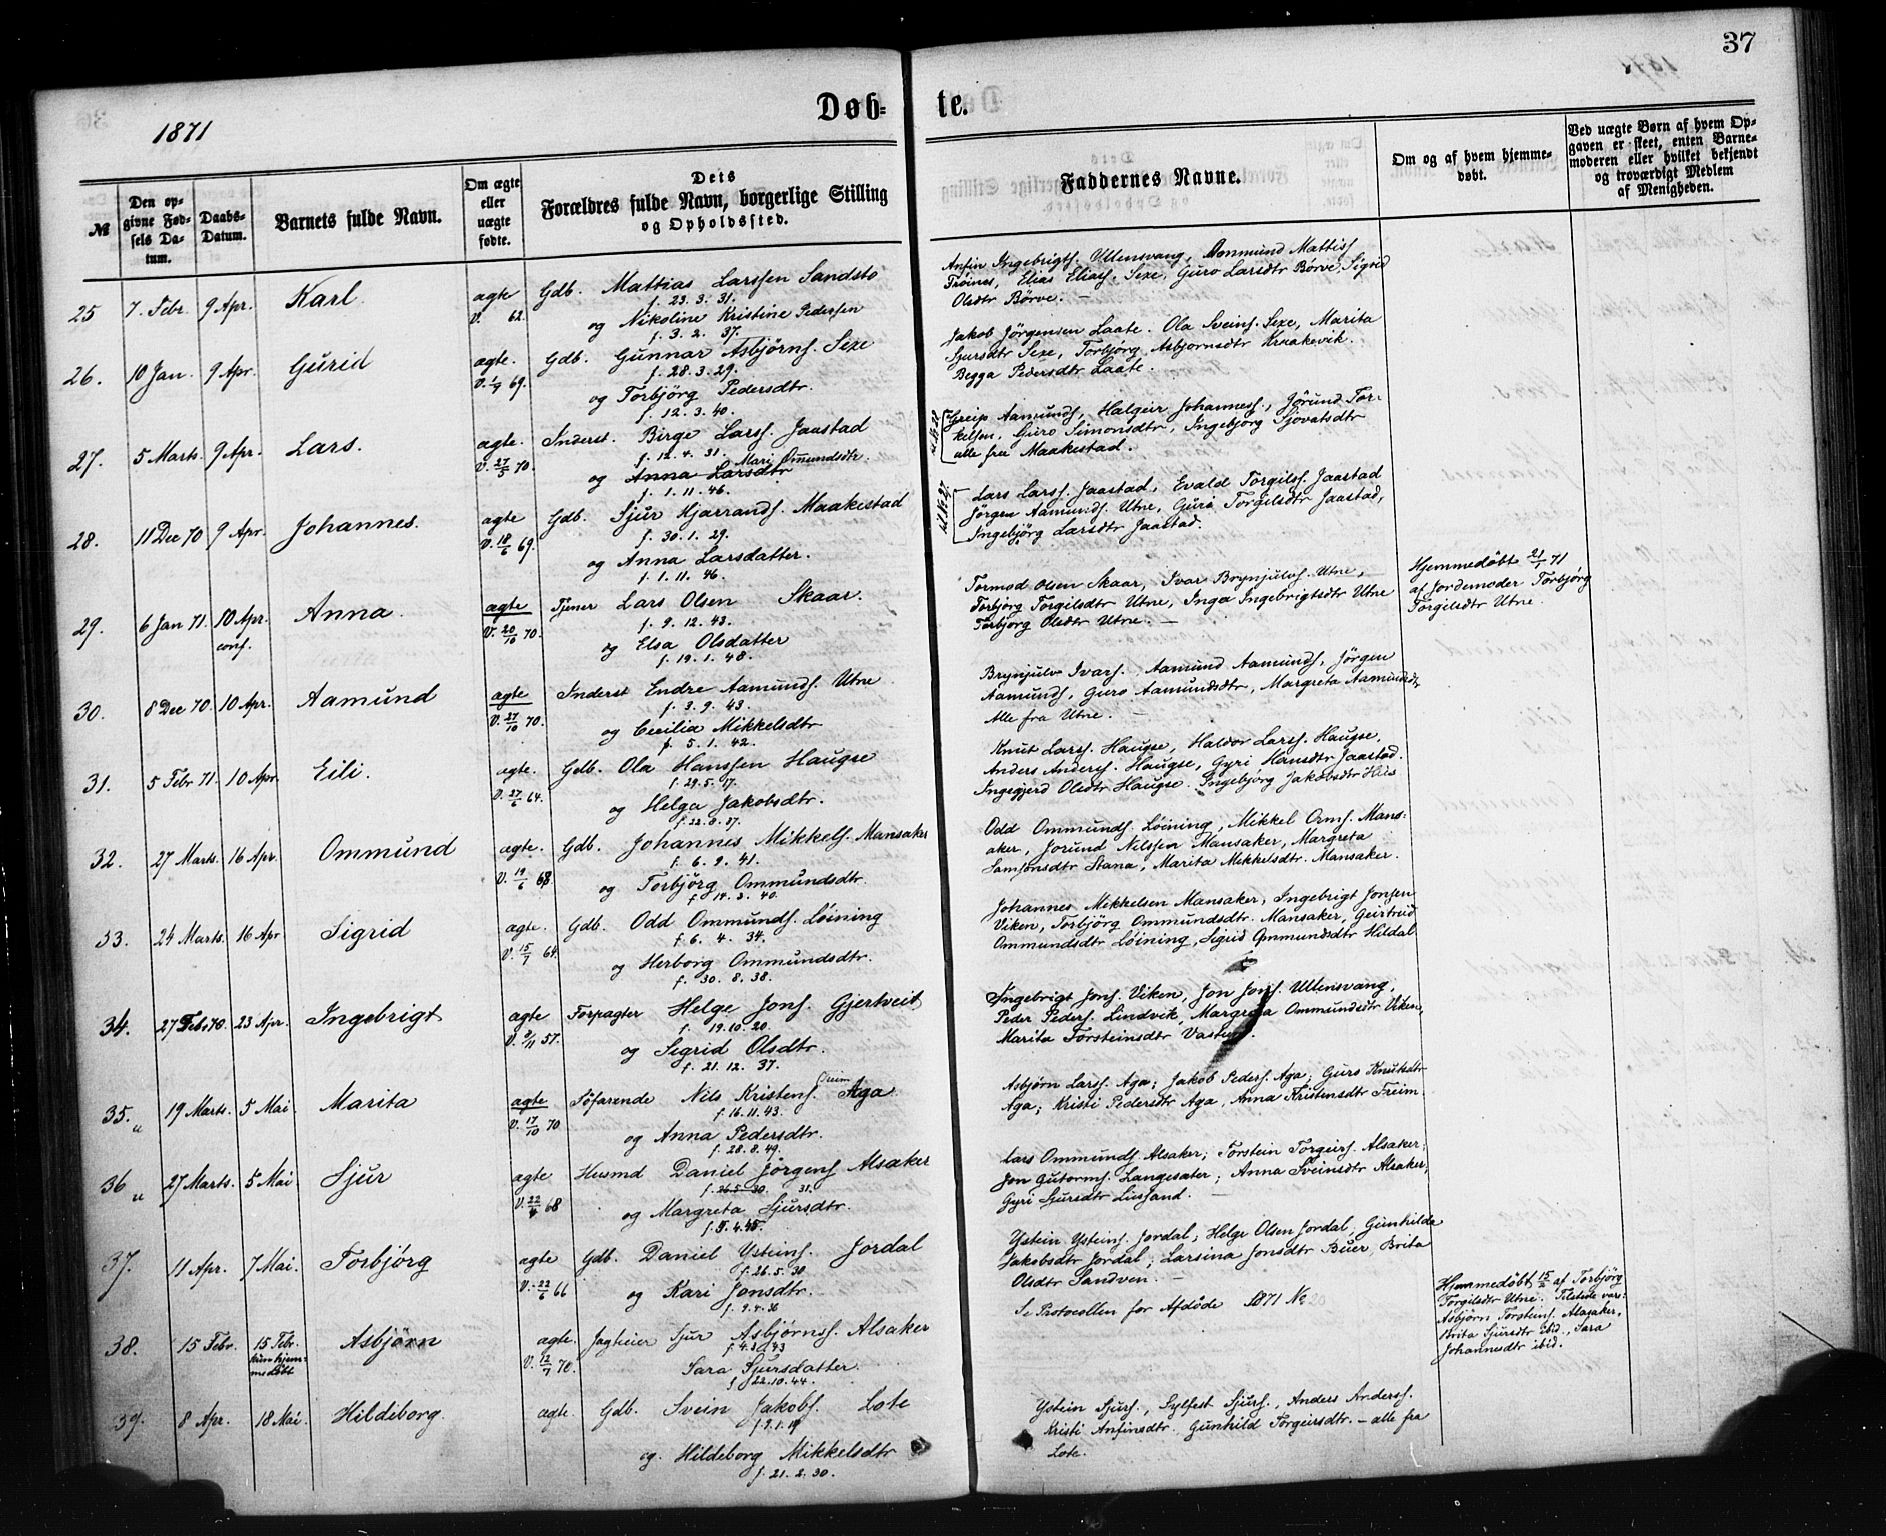 37
1871
Døb-
te.
№
Den op-
givne Fød-
sels Da-
tum.
Daabs-
Datum.
Barnets fulde Navn.
Om ægte
eller
uægte
fødte.
Dets
Forældres fulde Navn, borgerlige Stilling
og Opholdssted.
Faddernes Navne.
Om og af hvem hjemme-
døbt.
Ved uægte Børn af hvem Op-
gaven er skeet, enten Barne-
moderen eller hvilket bekjendt
og troværdigt Medlem
af Menigheden.
25 7. Febr. 9 Apr. Karl. ægte Gdb. Mattias Larssen Sandstø
f. 23. 3. 31.
V. 62. og Nikoline Kristine Pedersen
f. 3. 2. 37.
Anfin Ingebrigts. Ullensvang, Ommund Mattiss.
Frøines, Elias Eliass. Sexe, Guro Larsdtr Børve, Sigrid
Olsdtr Børve. —
26. 10 Jan. 9 Apr. Gurid ægte. Gdb. Gunnar Asbjörns. Sexe
f. 28. 3. 29.
V. 69. og Torbjörg Pedersdtr.
f. 12. 3. 40.
Jakob Jörgensen Laate. Ola Sveins. Sexe, Marita
Sjursdtr Sexe, Torbjörg Asbjornsdtr Kraakevik.
Begga Pedersdtr Laate.
27. 5 Marts. 9 Apr. Lars. ægte. Inderst. Birge Larss. Jaastad
f. 12. 4. 31.
Mari Omundsdtr.
V. 27/5 70. og Anna Larsdtr
f. 1. 11. 46.
til № 28
Greip Aamunds, Halgeir Johanness., Jörund Tor-
kelsen, Guro Simonsdtr, Ingebjörg Sjovatsdtr
alle fra Maakestad.
28. 11 Dec 70 9 Apr. Johannes. ægte Gdb. Sjur Hjarrands. Maakestad
f. 30. 1. 29.
V. 18/6 69. og Anna Larsdatter.
f. 1. 11. 46.
til № 27
Lars Larss. Jaastad, Evald Torgilss. Jaastad
Jörgen Aamunds. Utne, Guro Torgilsdtr Jaastad,
Ingebjörg Larsdtr Jaastad.
29. 6 Jan 71. 10 Apr. Anna. ægte Tjener Lars Olsen Skaar.
conf.
f. 9. 12. 43.
V. 20/10 70. og Elsa Olsdatter
f. 19. 1. 48.
Tormod Olsen Skaar, Ivar Brynjulvs. Utne,
Torbjörg Torgilsdtr Utne, Inga Ingebrigtsdtr Utne
Torbjörg Olsdtr Utne. —
Hjemmedøbt 21/1 71
af Jordemoder Torbjörg
Torgilsdtr Utne.
30. 8 Dec 70. 10 Apr. Aamund ægte Inderst Endre Aamunds. Utne
f. 3. 9. 43.
V. 27/10 70. og Cecilia Mikkelsdtr
f. 5. 1. 42.
Brynjulv Ivars. Aamund Aamunds, Jörgen
Aamunds, Guro Aamundsdtr, Margreta Aamundsdtr
Alle fra Utne. —
31. 5 Febr 71. 10 Apr. Eili. ægte. Gdb. Ola Hanssen Haugse
f. 29. 5. 17.
V. 27/6 64. og Helga Jakobsdtr.
Knut Larss. Haugse, Haldor Larss. Haugse,
Anders Anderss. Haugse, Gyri Hansdtr Jaastad.
Ingegjerd Olsdtr Haugse. Ingebjörg Jakobsdtr Hus
32. 27 Marts. 16 Apr. Ommund ægte. Gdb. Johannes Mikkels. Mansaker
f. 6. 9. 41.
V. 19/6 68. og Torbjörg Ommundsdtr.
f. 14. 3. 40.
Odd Ommunds. Løining, Mikkel Orms. Mans-
aker, Jorund Nilssen Mansaker, Margreta
Samsonsdtr Stana, Marita Mikkelsdtr. Mansaker.
33. 24 Marts. 16 Apr Sigrid ægte. Gdb. Odd Ommunds. Løining
f. 6. 4. 34.
V. 15/7 64. og Herborg Ommundsdtr.
f. 30. 8. 38.
Johannes Mikkelsen Mansaker, Ingebrigt Jonsen
Viken, Torbjörg Ommundsdtr. Mansaker, Geirtrud
Ommundsdtr Løining, Sigrid Ommundsdtr Hildal
34. 27 Feb. 70. 23 Apr. Ingebrigt ægte Forpagter Helge Jons. Gjertveit
f. 19. 10. 20.
V. 57. og Sigrid Olsdtr.
f. 21. 12. 37.
Ingebrigt Jons. Viken, Jon Jons. Ullensvang,
Peder Peders. Lindvik, Margreta Ommundsdtr Viken,
Marita Torsteinsdtr
35. „ 19 Marts. 5 Mai Marita ægte Søfarende Nils Kristens. Aga
f. 16. 11. 43.
V. 17/10 70 og Anna Pedersdtr.
f. 28. 8. 49.
Asbjørn Larss. Aga; Jakob Peders. Aga; Guro Knutsdtr
Aga; Kristi Pedersdtr Aga, Anna Kristensdtr Freim.
36 „ 27 Marts. 5 Mai. Sjur ægte Husmd Daniel Jörgens Alsaker
f. 26. 5. 30. 31.
V. 68 og Margreta Sjursdtr.
Lars Ommunds. Alsaker; Torstein Torgeirs. Alsaker;
Jon Gutorms. Langesæter; Anna Sveinsdtr Alsaker,
Gyri Sjursdtr
37. 11 Apr. 7 Mai. Torbjörg ægte Gdb. Daniel Ysteins. Jordal
f. 26. 5. 30
V. 22/6 66 og Kari Jonsdtr.
f. 9. 4. 36
Ystein Ysteins. Jordal; Helge Olsen Jordal; Gunhilda
Jakobsdtr Jordal; Larsina Jonsdtr Buer, Brita
Olsdtr Sandven. —
38. 15 Febr. 15 Febr. Asbjörn ægte. Sjur Asbjørns. Alsaker
kun hjem-
medøbt
V. 12/7 70. Sara Sjursdatter.
f. 22. 10. 44.
Se Protocollen for Afdøde 1871 №
Hjemmedøbt af Torbjörg
Torgilsdtr Utne. Tilstede vare:
Asbjörn Torsteins. Alsaker,
Brita Sjursdtr ibid., Sara
Johannesdtr ibid.
39. 8 Apr. 18 Mai. Hildeborg. ægte. Gdb. Svein Jakobs. Lote
og. Hildeborg Mikkelsdtr
f. 21. 2. 30.
Ystein Sjurs., Sylfest Sjurs., Anders Anderss.
Kristi Anfinsdtr. Gunhild Torgeirsdtr. — alle fra
Lote.